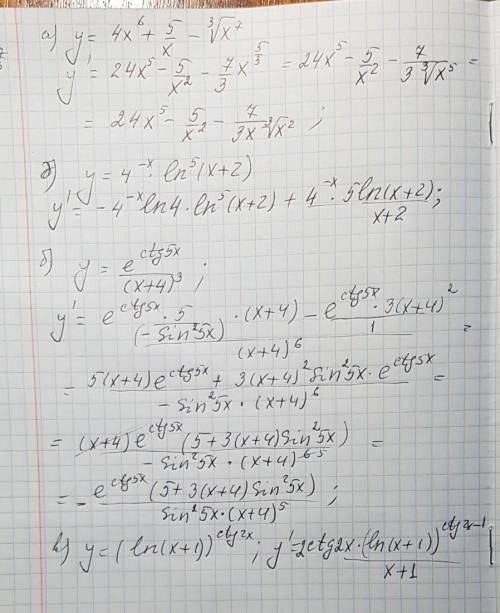 а) y = 4x⁶ + 5/x − ∛x⁷
y' = 24x⁵ − 5/x² − 7/3 x^(5/3) = 24x⁵ − 5/x² − 7/(3∛x⁵) =
= 24x⁵ − 5/x² − 7/(3x∛x²) ;
б) y = 4^(−x) · ln⁵(x+2)
y' = −4^(−x) ln4 · ln⁵(x+2) + 4^(−x) · 5ln(x+2)/(x+2);
б) y = e^(ctg5x)/(x+4)³ ;
y' = (e^(ctg5x) · 5/(−sin²5x) · (x+4) − e^(ctg5x) · 3(x+4)²/1)/(x+4)⁶ =
= (5(x+4)e^(ctg5x) + 3(x+4)² sin²5x · e^(ctg5x))/(−sin²5x · (x+4)⁶) =
= (x+4)e^(ctg5x) (5+3(x+4)sin²5x)/(−sin²5x · (x+4)^(6-5)) =
= − e^(ctg5x) (5+3(x+4)sin²5x)/(sin²5x · (x+4)⁵) ;
в) y = (ln(x+1))^(ctg2x) ; y' = 2ctg2x · (ln(x+1))^(ctg2x−1)/(x+1)